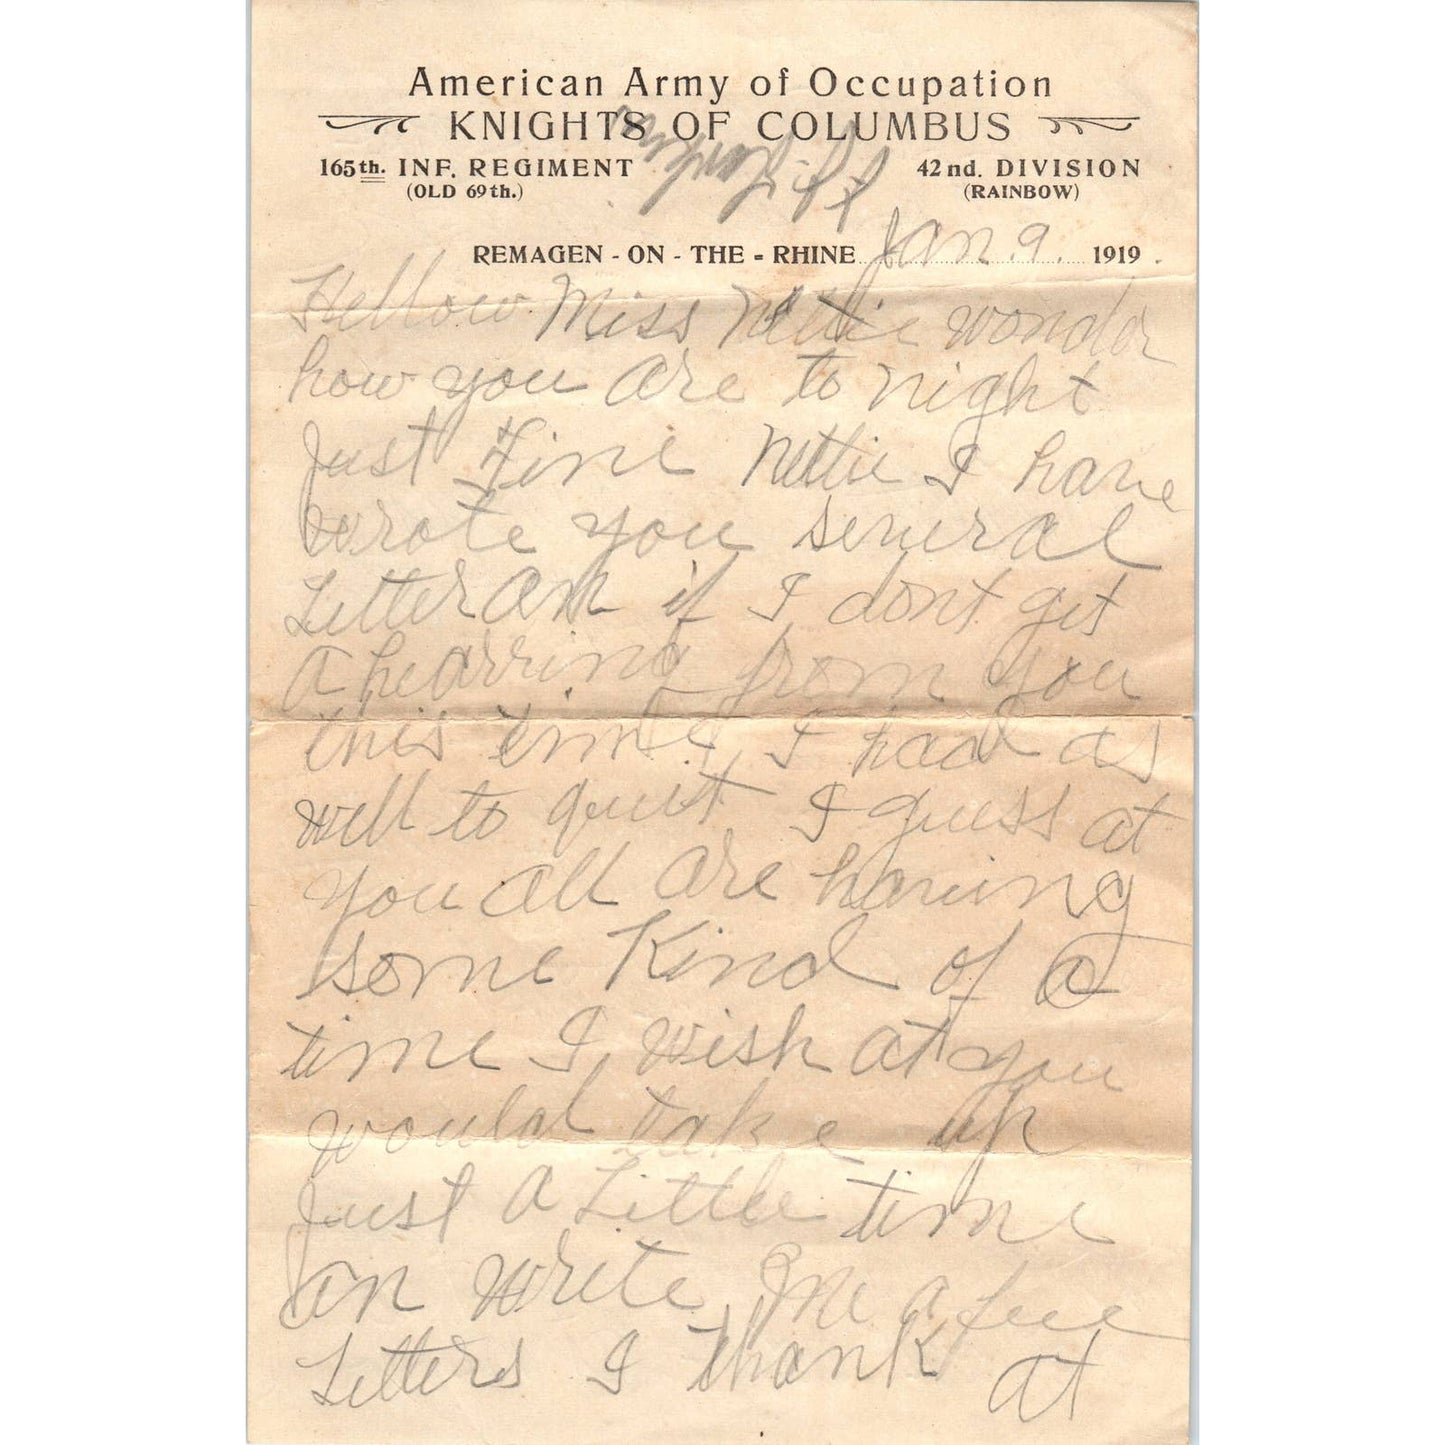 American Army of Occupation
KNIGHTS OF COLUMBUS
165th. INF. REGIMENT
(OLD 69th.)
42nd. DIVISION
(RAINBOW)
REMAGEN - ON - THE - RHINE Jan. 9. 1919.
Hellow Miss Nettie wonder
how you are to night
Just Fine Nettie I have
wrote you several
Letter an if I dont get
a hearring from you
this time I had as
well to quit I guess at
you all are having
some Kind of a
time I wish at you
would take up
Just a Little time
an write me a few
Letters I thank at